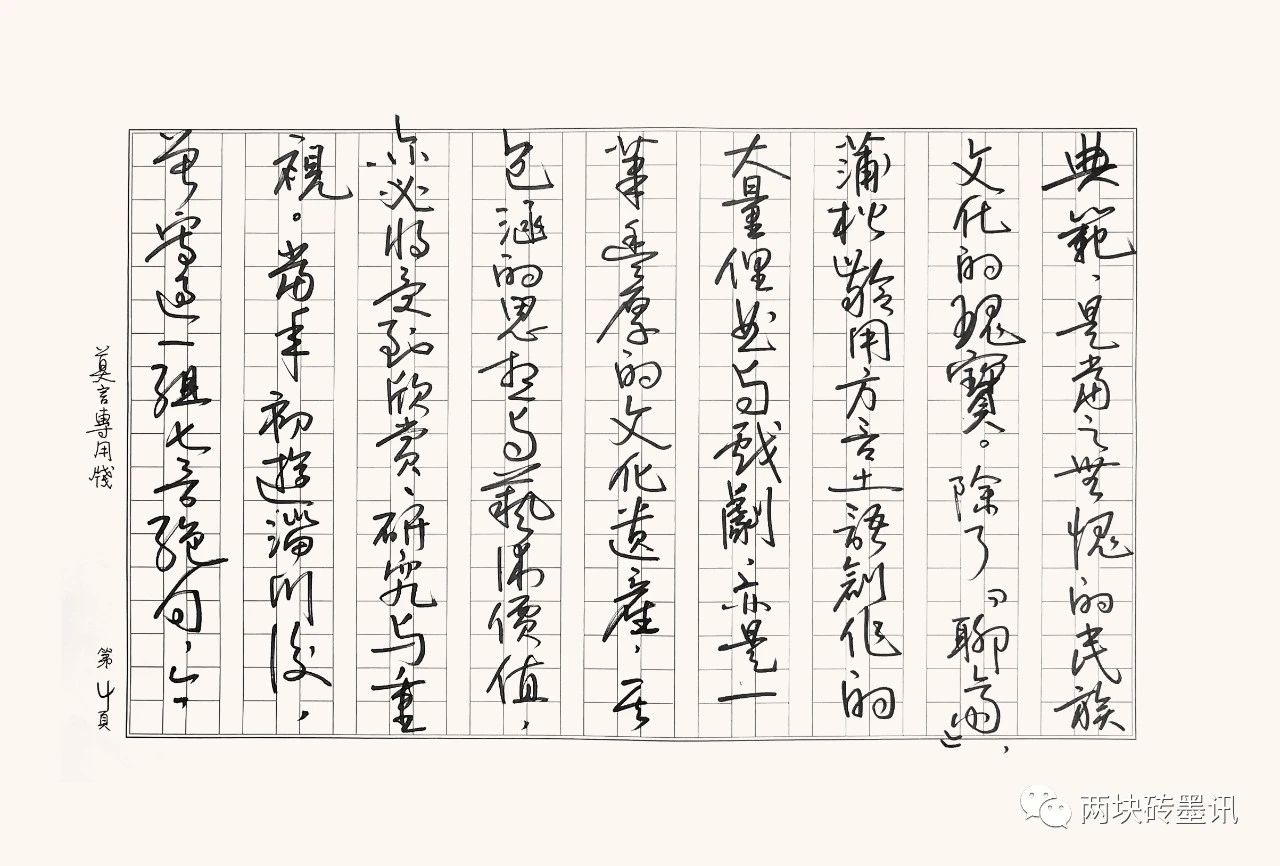 典範、是當之無愧的民族
文化的瑰寶。除了「聊齋」,
蒲松齡用方言土語創作的
大量俚曲与戲劇、亦是一
筆豐厚的文化遺產,其
包涵的思想与藝術價值,
亦必將受到欣賞、研究与重
視。當年初遊淄川後,
曾寫過一組七言絕句,今
莫言專用牋
第4頁
两块砖墨讯